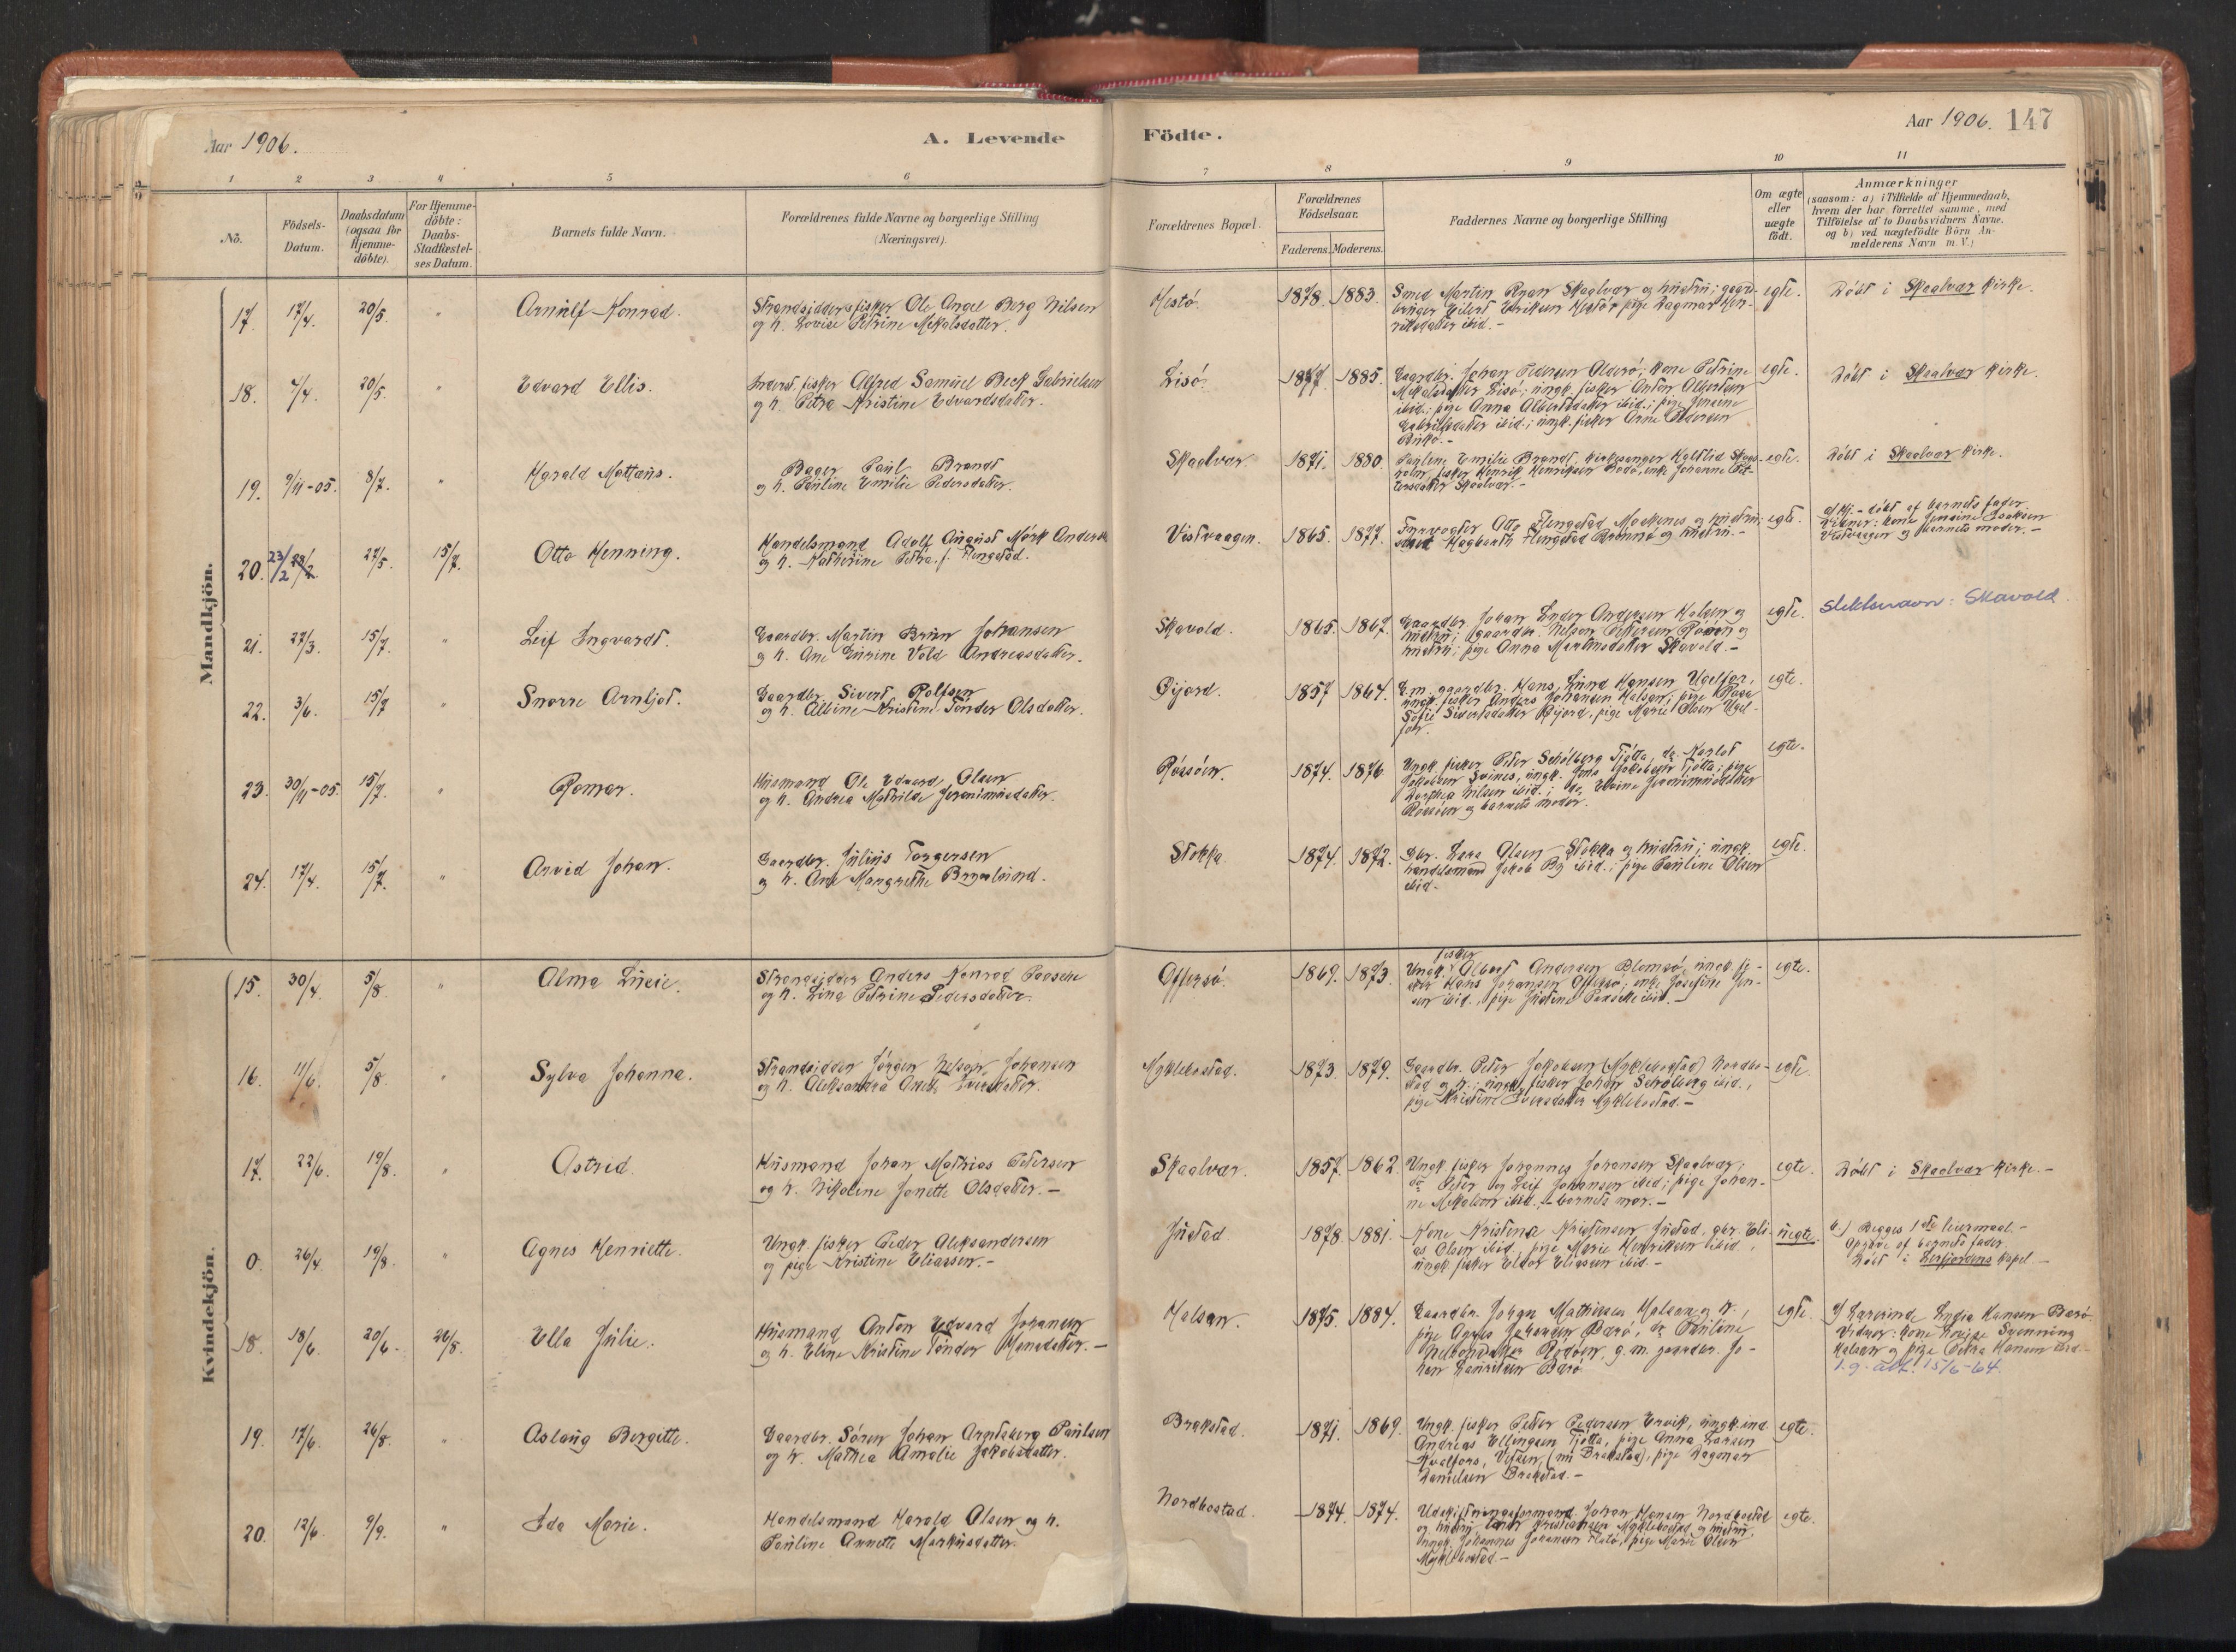 Aar 1906.
A. Levende
Födte.
Aar 1906. 147
1 2 3 4 5 6 7 8 9 10 11
No.
Födsels-
Datum.
Daabsdatum
(ogsaa for
Hjemme-
döbte).
For Hjemme-
döbte:
Daabs-
Stadfæstel-
ses Datum.
Barnets fulde Navn.
Forældrenes fulde Navne og borgerlige Stilling
(Næringsvei).
Forældrenes Bopæl.
Forældrenes
Födselsaar.
Faderens. Moderens.
Faddernes Navne og borgerlige Stilling
Om ægte
eller
uægte
födt.
Anmærkninger
(saasom: a) i Tilfælde af Hjemmedaab,
hvem der har forrettet samme, med
Tilföielse af to Daabsvidners Navne.
og b) ved uægtefödte Börn An-
melderens Navn m. V.)
Mandkjön.
17. 17/4. 20/5. " Arnülf Konrad.
Strandsidder fisker Ole Angel Berg Nilsen
og h. Lovise Petrine Mikalsdatter.
Hestö. 1878. 1883.
Smed Martin Ryan Skaalvær og hüstrü; gaard-
brüger Eilert Eriksen Hestö; pige Dagmar Hen-
riksdatter ibid.-
egte. Döbt i Skaalvær kirke.
18. 7/4. 20/5. " Edvard Ellis.
Inderst. fisker Alfred Samüel Beck Gabrielsen
og h. Petra Kristine Edvardsdatter.
Lisö. 1877. 1885.
Gaardbr. Johan Pedersen Alserö; kone Petrine
Mikalsdatter Lisö; üngk. fisker Anton Albertsen
ibid.; pige Anna Albertsdatter ibid.; pige Jensine
Gabrielsdatter ibid.; üngk. fisker Arne Pedersen
egte. Döbt i Skaalvær kirke.
19. 9/11-05. 8/7. " Harald Mattæüs.
Bager Paül Brandt
og h. Paüline Emilie Pedersdatter.
Skaalvær. 1871. 1880.
Paüline Emilie Brandt, kirkesanger
fisker Henrik Henriksen Bodö, enke Johanne Pet-
tersdatter Skaalvær.-
egte. Döbt i Skaalvær kirke.
20. 23/2 27/5. 15/7. Otto Henning.
Handelsmand Adolf Aügüst Mörk Andersen
og h. Katherine Petra f. Flengstad.
Vistvaagen. 1865. 1877.
Fyrvogter Otto Flengstad og hüstrü;
Hagbarth Flengstad Brönnö og hüstrü.-
egte.
a) Hj.-döbt af barnets fader.
Vidner: kone Jensine Isaksen
Vistvaagen og barnets moder.-
21. 27/3. 15/7. " Leif Ingvardt.
Gaardbr. Martin Brün Johansen
og h. Ane Eürine Vold Andreasdatter.
Skavold. 1865. 1867.
Gaardbr. Johan Ender Andersen Halsen og
hüstrü; gaardbr. Nelson Pettersen og
hüstrü; pige Anna Martinsdatter Skavold.-
egte. Slektsnavn: Skavold
22. 3/6. 15/7 Snorre Arnljot.
Gaardbr. Sivert Rolfsen
og h. Albine Kristine Tönder Olsdatter.
Öijord. 1857 1864.
G.m. gaardbr. Hans Lünd Hansen Ügelfor,
üngk. fisker Anders Johansen Halsan; pige
Sofie Sivertsdatter Öijord, pige Marie Olsen Ügel-
for.
egte.
23. 30/11-05. 15/7. " Romar.
Hüsmand Ole Edvard Olsen
og h. Andrea Mathilde Jeronimüsdatter.
Rössöen. 1874. 1876
Üngk. fisker Peter Schölberg Tjötta, do. Karlot
Jakobsen Svines, üngk. Jens Jakobsen Tjötta; pige
Dorthea Nilsen ibid.; do. Elvine Jeronimüsdatter
Rössöen og barnets moder.
egte.
24. 17/4. 15/7. " Arvid Johan.
Gaardbr. Jülius Torgersen
og h. Ane Margrethe Bryнlünd.
Stokka. 1874. 1872.
Gbr. Lars Olsen Stokka og hüstrü; üngk.
handelsmand Jakob By ibid.; pige Paüline Olsen
ibid.-
egte.
Kvindekjön.
15. 30/4. 5/8. " Alma Lücie.
Strandsidder Anders Konrad Paasche
og h. Lina Petrine Pedersdatter.
Offersö. 1869. 1873.
fisker
Üngk. Albert Andersen Blomsö, üngk. fi-
sker Hans Johansen Offersö, enke Josefine Jen-
sen ibid., pige Jüstine Paasche ibid.-
egte.
16. 11/6. 5/8. " Sylva Johanna.
Strandsidder Jörgen Nelson Johansen
og h. Aleksandra Anek. Iversdatter.
Myklebostad. 1873. 1879.
Gaardbr. Peter Jakobsen (Myklebostad) Nordbo-
stad og h.; üngk. fisker Johan Schölberg ibid.,
pige Kristine Iversdatter Myklebostad.-
egte.
17. 22/6. 19/8. " Astrid.
Hüsmand Johan Mathias Petersen
og h. Nikoline Janette Olsdatter.-
Skaalvær. 1857. 1862.
Üngk. fisker Johannes Johansen Skaalvær;
do. Peter og Leif Johansen ibid; pige Johan-
ne Mikalsen ibid., barnets mor.-
egte. Döbt i Skaalvær kirke.-
0. 26/4. 19/8. " Agnes Henriette.
Üngk. fisker Peder Aleksandersen
og pige Kristine Eliassen.-
Jüstad. 1878. 1881.
Kone Kristense Kristensen Jüstad, gbr. Eli-
as Olsen ibid, pige Marie Henriksen ibid,
üngk. fisker Eldor Eliassen ibid.-
üegte.
b.) Begges 1ste leiermaal.-
Opgave af barnets fader.
Döbt i Leirfjordens kapel.-
18. 18/6. 20/6.- 26/8. Ella Jülie.
Hüsmand Anton Edvard Johansen
og h. Eline Kristine Tönder Hansdatter.-
Halsan. 1875. 1884.
Gaardbr. Johan Mathisen Halsan og h.,
pige Agnes Johansen Barö, do Paüline
Nelsonsdatter Rödöen, g.m. gaardbr. Jo-
han Laüritsen Barö.
egte.
a) Lærerinde Lydia Hansen Barö.
Vidner: kone Lovise Svenning
Halsan og pige Petra Hansen ibid.-
1.g. att. 15/6-64.
19. 17/6. 26/8. " Aslaüg Bergitte.
Gaardbr. Sören Johan Arntsberg Paülsen
og h. Mathea Amalie Jakobsdatter.
Brakstad. 1871. 1869.
Üngk. fisker Petter Pedersen Ervik, üngk. ind.
Andreas Ellingsen Tjötta, pige Anna Larsen
Kvalfors, Vefsen, (nü Brakstad), pige Dagmar
Danielsen Brakstad.-
egte.
20. 12/6. 9/9. " Ida Marie.
Handelsmand Harald Olsen og h.
Paüline Annette Markusdatter.
Nordbostad. 1874. 1874.
Udskiftningsformand Johan Hansen Nordbostad
og hüstrü, Kristiansen Myklebostad og hüstrü,
üngk. Johannes Johansen Flatö, pige Marie Olsen
Myklebostad.-
egte.